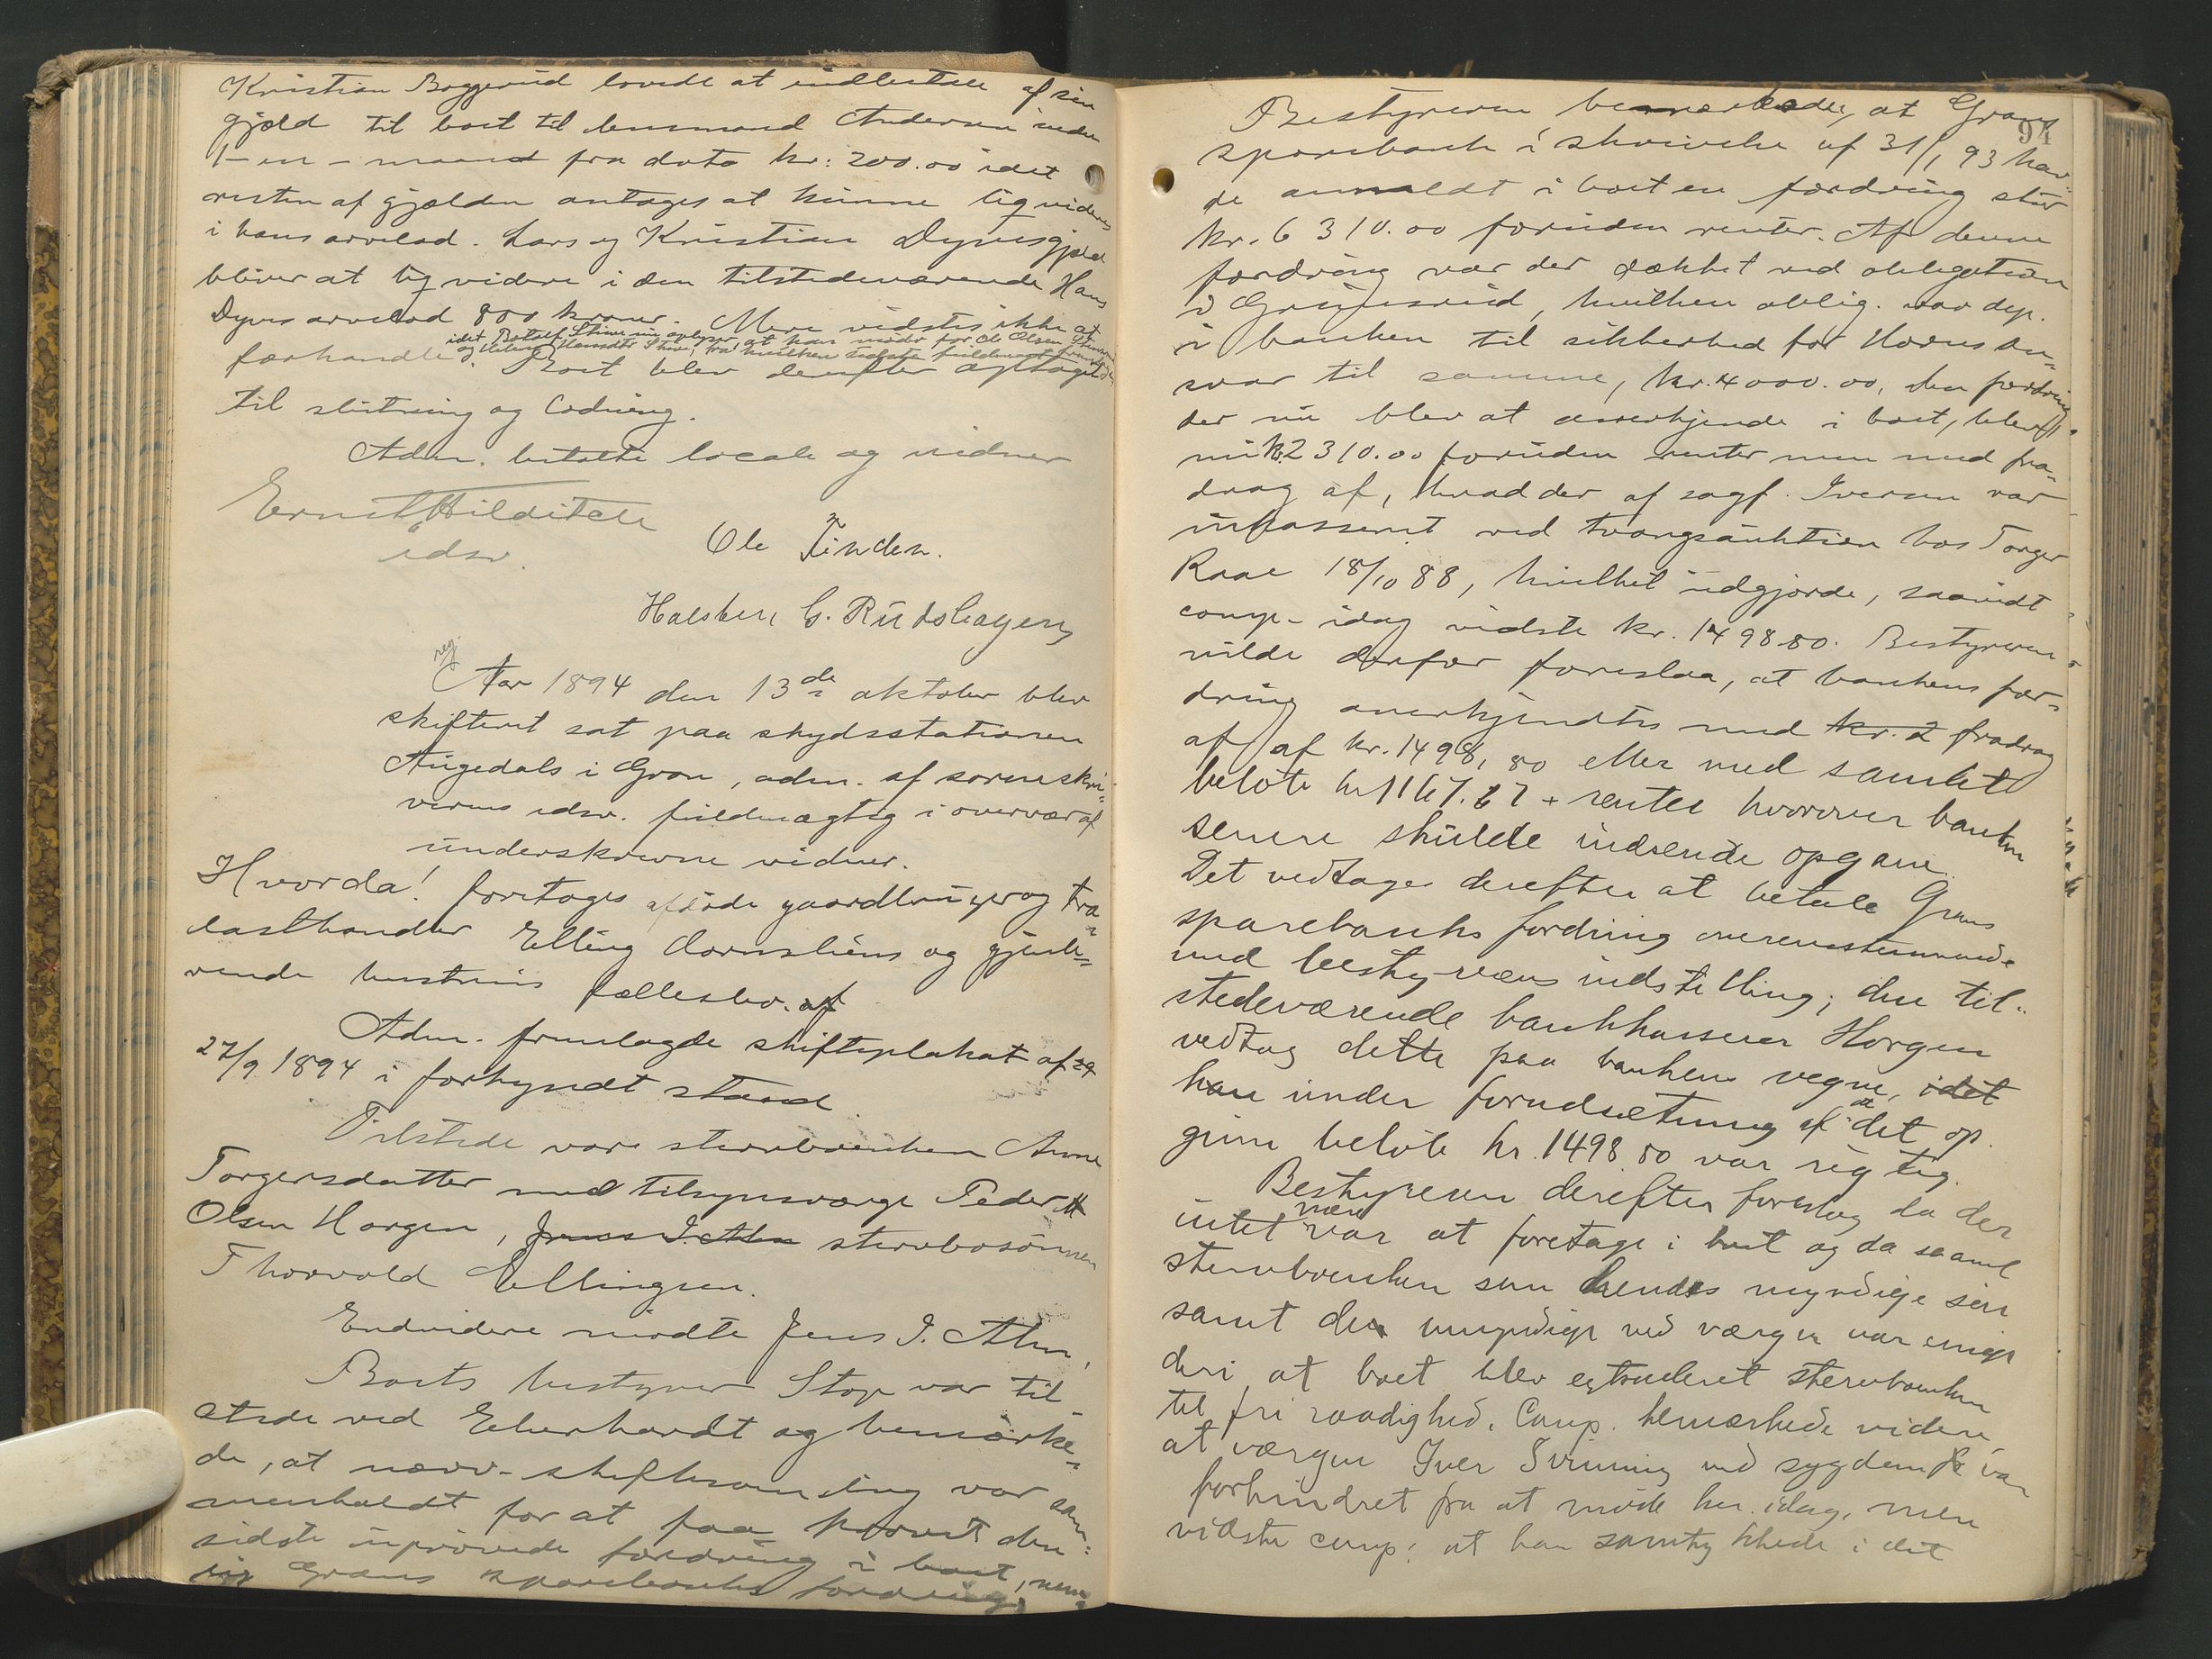 Kristian Boggerud lovede at indbetale af sin
gjæld til boet til lensmand Andersen inden
1-en-maaned fra dato kr: 200.00 idet
resten af gjælden antages at kunne likvideres
i hans arvelod. Lars og Kristian Dynes gjæld
bliver at likvidere i den tilstedeværende Hans
Dynes arvelod 800 kroner. Mere vidstes ikke at
idet oplyser, at han møder for Ole Olsen
og fra hvilken sidste fuldmagt
forhandle. Boet blev derefter optaget
til slutning og lodning.
Adm. betalte locale og vidner
Ernst Hilditch
edsv.
Ole Tinden.
Halsten G. Rudshagen
rej
Aar 1894 den 13de oktober blev
skifteret sat paa skydsstationen
Augedals i Gran, adm. af sorenskri=
verens edsv. fuldmægtig i overvær af
underskrevne vidner.
Hvorda! foretages afdøde gaardbruger og tra=
lasthandler Elling Hornsliens og gjenle=
vende hustrus fællesbo. af
Adm. fremlagde skifteplakat af 24
27/9 1894 i forkyndt stand.
Tilstede var stervboenken Anne
Torgersdatter med tilsynsværge Peder H
Olsen Horgen, Jens J. Alm stervbosønnen
Thorvald Ellingsen.
Endvidere mødte Jens J. Alm,
Boets bestyrer Stop var til
stede ved Eberhardt og bemærke=
de, at nærv. skiftesamling var sam=
menkaldt for at faa prøvet den
sidste uprøvede fordring i boet, nem=
lig Grans sparebanks fordring.
94
Bestyreren bemærkede, at Grans
sparebank i skrivelse af 31/1 93 hav=
de anmeldt i boet en fordring stor
kr. 6310.00 foruden renter. Af denne
fordring var der dækket ved obligation
i Grimsrud, hvilken oblig. var dep.
i banken til sikkerhed for Horns an=
svar til samme, kr. 4000.00, den fordring
der nu blev at anerkjende i boet, blev
nu kr. 2310.00 foruden renter men med fra=
drag af, hvad der af sagf. Iversen var
inkasseret ved tvangsauktion hos Torger
Raae 18/10 88, hvilket udgjorde, saavidt
comp. idag vidste kr. 1498.80. Bestyreren
vilde derfor foreslaa, at bankens for=
dring anerkjendtes med kr. 2 fradrag
af af kr. 1498,80 eller med samlet
beløb kr 1167.67 + renter hvorover banken
senere skulde indsende opgave.
Det vedtages derefter at betale Grans
sparebanks fordring overensstemmende
med bestyrerens indstilling; den til=
stedeværende bankkasserer Horgen
vedtog dette paa bankens vegne, idet
han under forudsætning af at det op=
givne beløb kr. 1498.80 var rigtig.
Bestyreren derefter foreslog da der
intet mere var at foretage i boet og da saavel
stervboenken som hendes myndige søn
samt den umyndige ved værgen var enige
deri at boet blev extraderet stervboenken
til fri raadighed. Comp. bemærkede videre
at værgen Iver Svinning ved sygdom var
forhindret fra at møde her idag, men
vidste comp: at han samtykkede i det